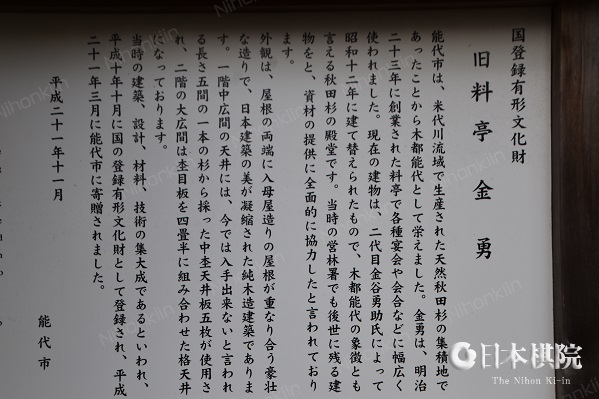 国登録有形文化財
旧料亭 金勇
能代市は、米代川流域で生産された天然秋田杉の集積地で
あったことから木都能代として栄えました。金勇は、明治
二十三年に創業された料亭で各種宴会や会合などに幅広く
使われました。現在の建物は、二代目金谷勇助氏によって
昭和十二年に建て替えられたもので、木都能代の象徴とも
言える秋田杉の殿堂です。当時の営林署でも後世に残る建
物をと、資材の提供に全面的に協力したと言われており
ます。
外観は、屋根の両端に入母屋造りの屋根が重なり合う豪壮
な造りで、日本建築の美が凝縮された純木造建築でありま
す。一階中広間の天井には、今では入手出来ないと言われ
る長さ五間の一本の杉から採った中杢天井板五枚が使用さ
れ、二階の大広間は杢目板を四畳半に組み合わせた格天井
になっております。
当時の建築、設計、材料、技術の集大成であるといわれ、
平成十年十月に国の登録有形文化財として登録され、平成
二十一年三月に能代市に寄贈されました。
平成二十一年十一月
能代市
日本棋院
The Nihon Ki-in
Nihonkiin